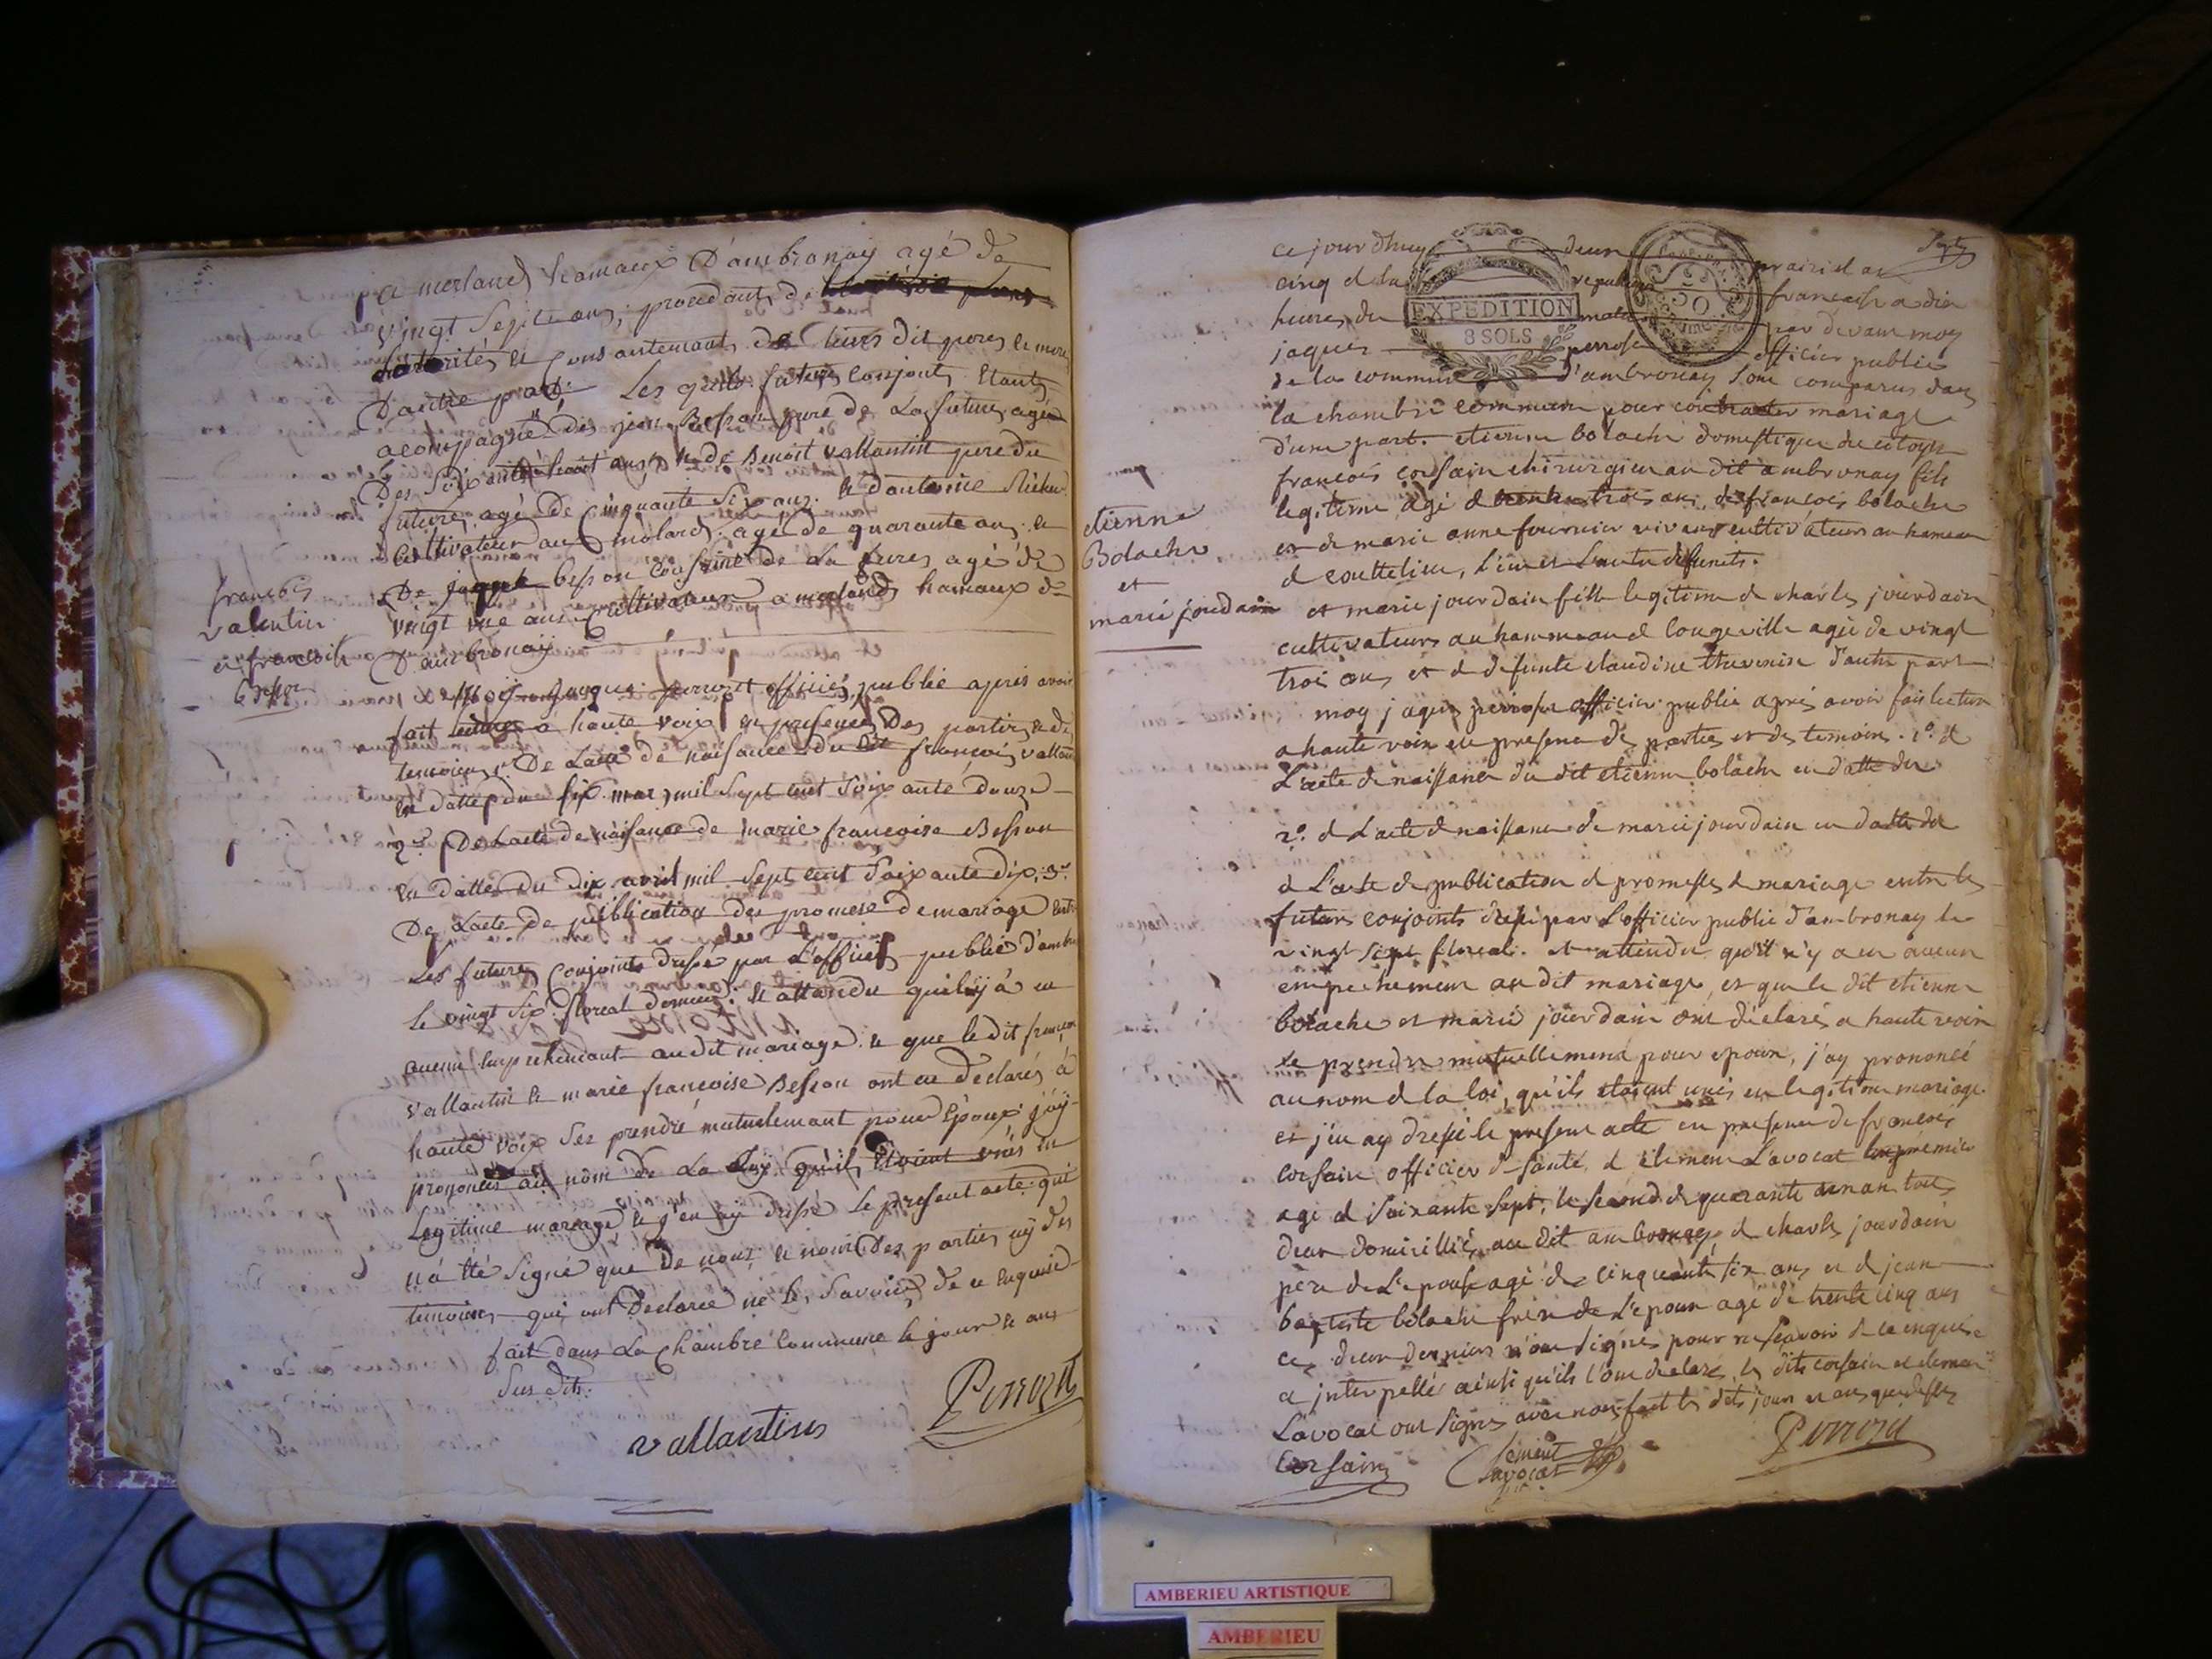 a merland hamaux D'ambronay agé de
vingt Sept ans, procedant de
autorités et Consantemant de leurs dit peres et meres
D'autre part; Les quels futurs Conjoints Etants
acompagné des jean Besson pere de La future agée
De Soixante huit ans, et de Benoit vallantin pere du
future, agé de Cinquante Six ans. et dantoine
Cultivateur au molard agé de quarante ans. et
De jaque besson Cousine de La agé de
vingt une ans Cultivateur a merland hamaux de
D'ambronay
francois
valentin
et francoise
besson
moy jaques perrozet officié public apres avoir
fait lecture a haute voix en presence Des parties et de
temoien 1° De Lacte de naisance du dit francois vallantin
en datte du six mars mil sept cent Soixante douze
2° De Lacte de naisance de marie francoise Besson
en datte du Dix avril mil Sept cent Soixante dix, 3°
De Lacte de publication des promese de mariage entre
Les futures Conjoints dressé par L'officié public d'ambr
le vingt Six floreal dernier. et attandu quil ny à eu
aucun Enpechemant audit mariage. et que le dit francois
vallantin et marie francoise Besson ont eu declarés à
haute voix Ses prendre mutuelemant pour Epoux j'ay
prononcés au nom de La Loy quil Etoient unis en
Legitime mariage et j'en ay dressé Le present acte qui
n'a été Signé que De nous, et nourie Des parties ny des
temoins qui ont Declaree ne le Savoire de ce Enquerie
fait dans La Chambre Commune le jour et ans
Sus dits.
vallantin
Perrozet
Sept
ce jour d'huy deux prairial an
cinq de la republique francaise a dix
heures du matin par devant moy
jaques perroset officier public
de la commune d'ambronay sont comparus dans
la chambre commune pour contracter mariage
d'une part. etienne bolache domestique du citoyen
francois corsain chirurgien au dit ambronay fils
legitime agé de trente trois ans, de francois bolache
et de marie anne fournier vivans cultivateurs au hameau
de couttelieu, L'un et L'autre defunts.
etienne
Bolache
et
marie jourdain
et marie jourdain fille legitime de charles jourdain,
cultivateurs au hammeau de longeville agée de vingt
trois ans et de defunte claudine thevenin d'autre part
moy jaques perroset officier public après avoir fais lecture
a haute voix en presence de parties et des temoins. 1° de
L'acte de naissance du dit etienne bolache en datte du
2° de L'acte de naissance de marie jourdain en datte du
de L'acte de publication de promesses de mariage entre les
futurs conjoints dressé par L'officier public d'ambronay le
vingt sept floreal. et attendu qu'il n'y a eu aucun
empechement au dit mariage, et que le dit etienne
bolache et marie jourdain ont déclarés a haute voix
se prendre mutuellement pour epoux, j'ay prononcé
au nom de la loi, qu'ils etoient unis en legitime mariage.
et j'en ay dressé le present acte en presence de francois
corsain officier de santé, de clement L'avocat le premier
agé de soixante sept, le second de quarante an tous
deux domicilliés au dit ambronay, de charles jourdain
père de L'epouse agé de cinquante six ans et de jean
baptiste bolache frère de L'epoux agé de trente cinq ans
ces deux derniers n'ont signés pour ne scavoir de ce enquis
a interpellés ainsi qu'ils l'ont declarés, les dits corsain et clement
L'avocat ont signés avec nous fait les dits jour et ans que dessus
Corsain
clement
Lavocat
Perrozet
EXPEDITION
8 SOLS
50
AMBERIEU ARTISTIQUE
AMBERIEU